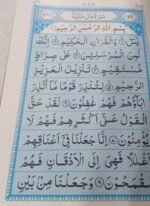 بِسْمِ اللّٰهِ الرَّحْمٰنِ الرَّحِيْمِ
يٰسٓ ۚ وَالْقُرْاٰنِ الْحَكِيْمِ ۙ اِنَّكَ
لَمِنَ الْمُرْسَلِيْنَ ۙ عَلٰى صِرَاطٍ
مُّسْتَقِيْمٍ ۗ تَنْزِيْلَ الْعَزِيْزِ
الرَّحِيْمِ ۙ لِتُنْذِرَ قَوْمًا مَّآ اُنْذِرَ
اٰبَآؤُهُمْ فَهُمْ غٰفِلُوْنَ ۞ لَقَدْ حَقَّ
الْقَوْلُ عَلٰٓى اَكْثَرِهِمْ فَهُمْ لَا
يُؤْمِنُوْنَ ۞ اِنَّا جَعَلْنَا فِيْٓ اَعْنَاقِهِمْ
اَغْلٰلًا فَهِيَ اِلَى الْاَذْقَانِ فَهُمْ
مُّقْمَحُوْنَ ۞ وَجَعَلْنَا مِنْۢ بَيْنِ